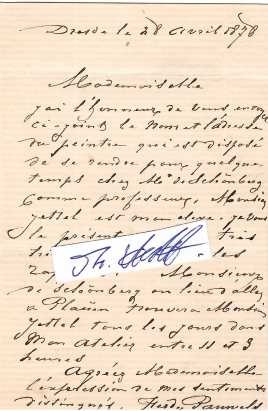 Dresde le 28 Avril 1878
Mademoiselle
j'ai l'honneur de vous envoyer
ci-joint le nom et l'adresse
du peintre qui est disposé
de se rendre pour quelque
temps chez Mr de Schönberg
comme professeur, Monsieur
Jettel est mon eleve, je vous
le présente très
les
Monsieur
de Schönberg
à Plauen trouvera Monsieur
Jettel tous les jours dans
mon Atelier entre 11 et 3
heures
Agréez Mademoiselle
l'expression de mes sentiments
distingués. Ferd. Pauwels